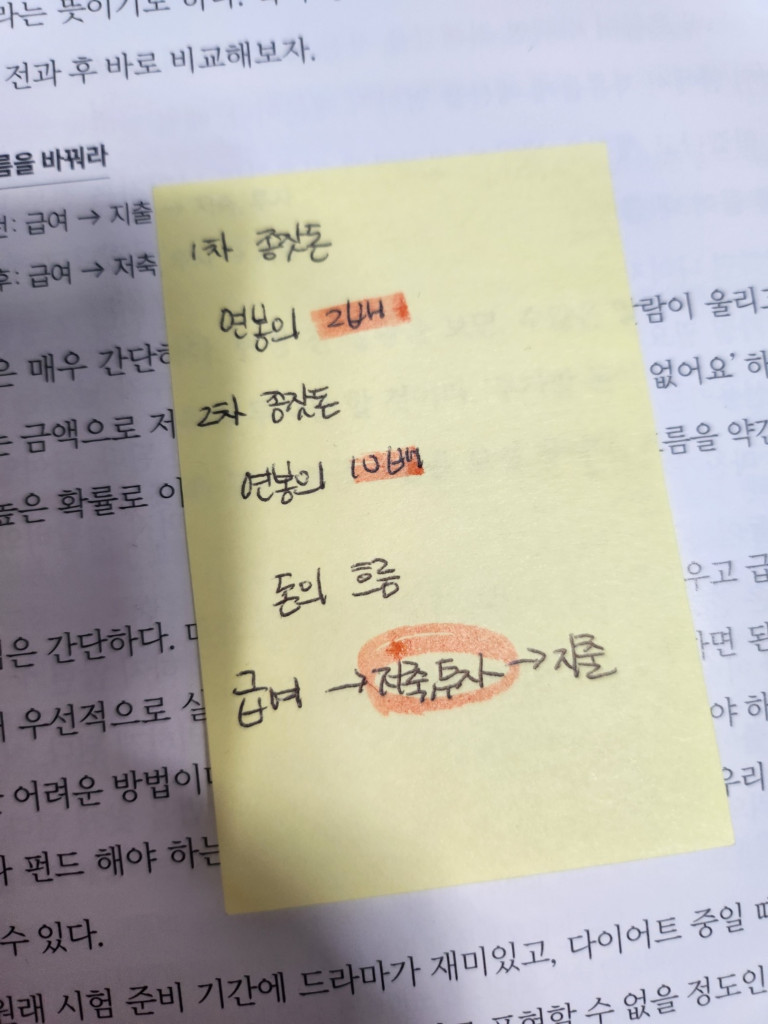 전과 후 바로 비교해보자.
름을 바꿔라
전: 급여 → 지출
후: 급여 → 저축
1차 종잣돈
연봉의 2배
2차 종잣돈
연봉의 10배
돈의 흐름
급여 → 저축, 투자 → 지출
은 매우 간단하
람이 울리고
는 금액으로 저
없어요' 하
높은 확률로 이
흐름을 약간
우고 급
은 간단하다.
라면 된
우선적으로 실
야 하
어려운 방법이
우리
펀드 해야 하는
수 있다.
원래 시험 준비 기간에 드라마가 재미있고, 다이어트 중일 때
표현할 수 없을 정도인